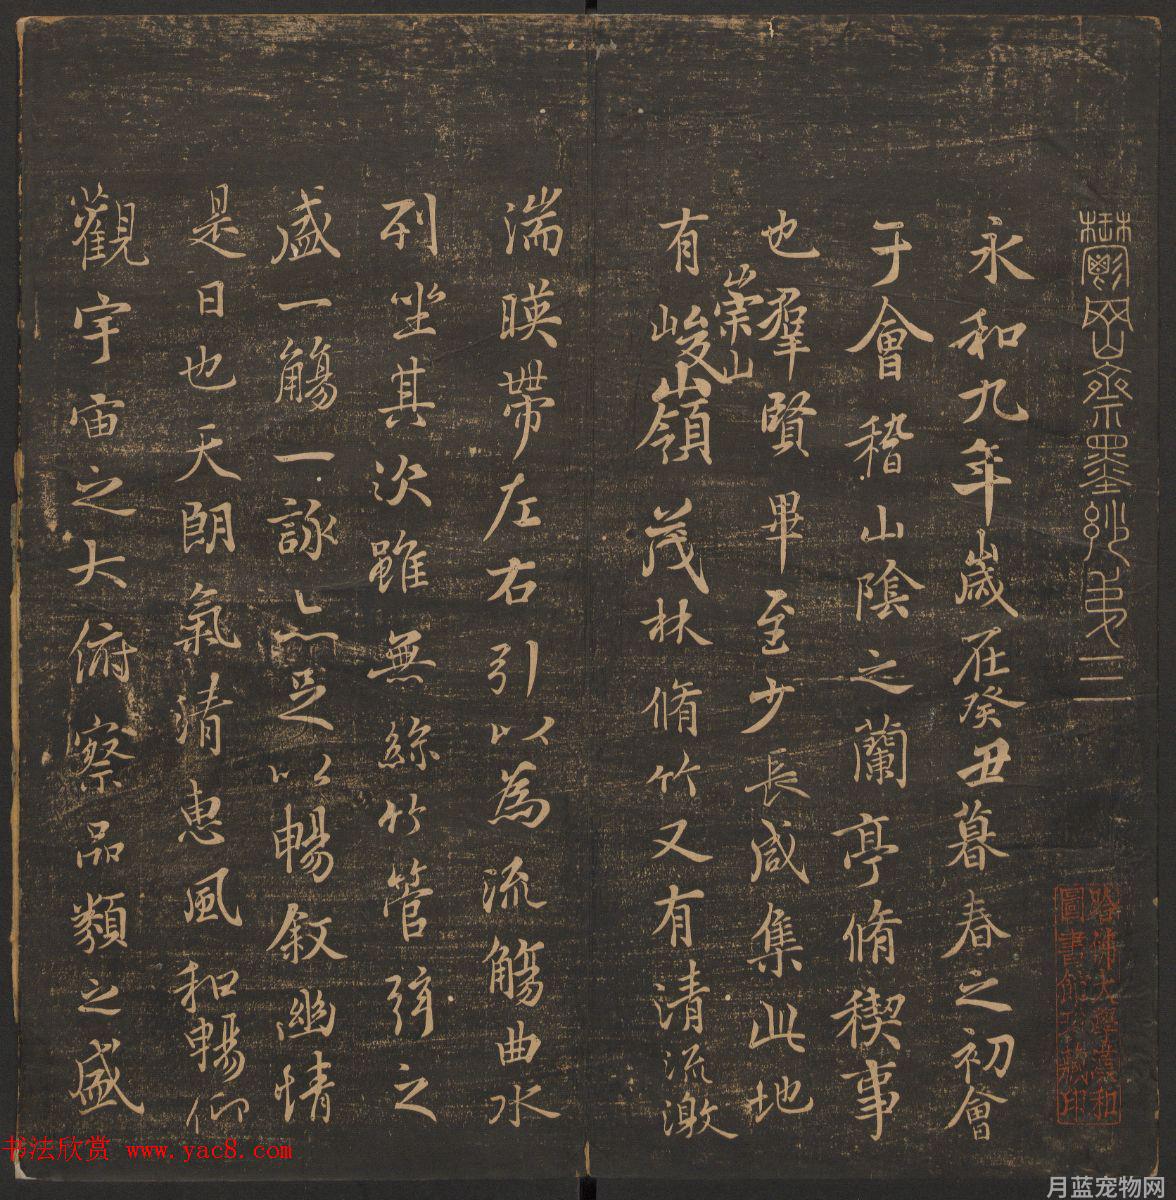 鬱岡齋墨妙弟三
永和九年歲在癸丑暮春之初會
于會稽山陰之蘭亭脩稧事
也羣賢畢至少長咸集此地
有崇山峻領茂林脩竹又有清流激
湍暎帶左右引以為流觴曲水
列坐其次雖無絲竹管弦之
盛一觴一詠亦足以暢敘幽情
是日也天朗氣清惠風和暢仰
觀宇宙之大俯察品類之盛
哈佛大學漢和
圖書館珍藏印
书法欣赏 www.yac8.com
月蓝宠物网